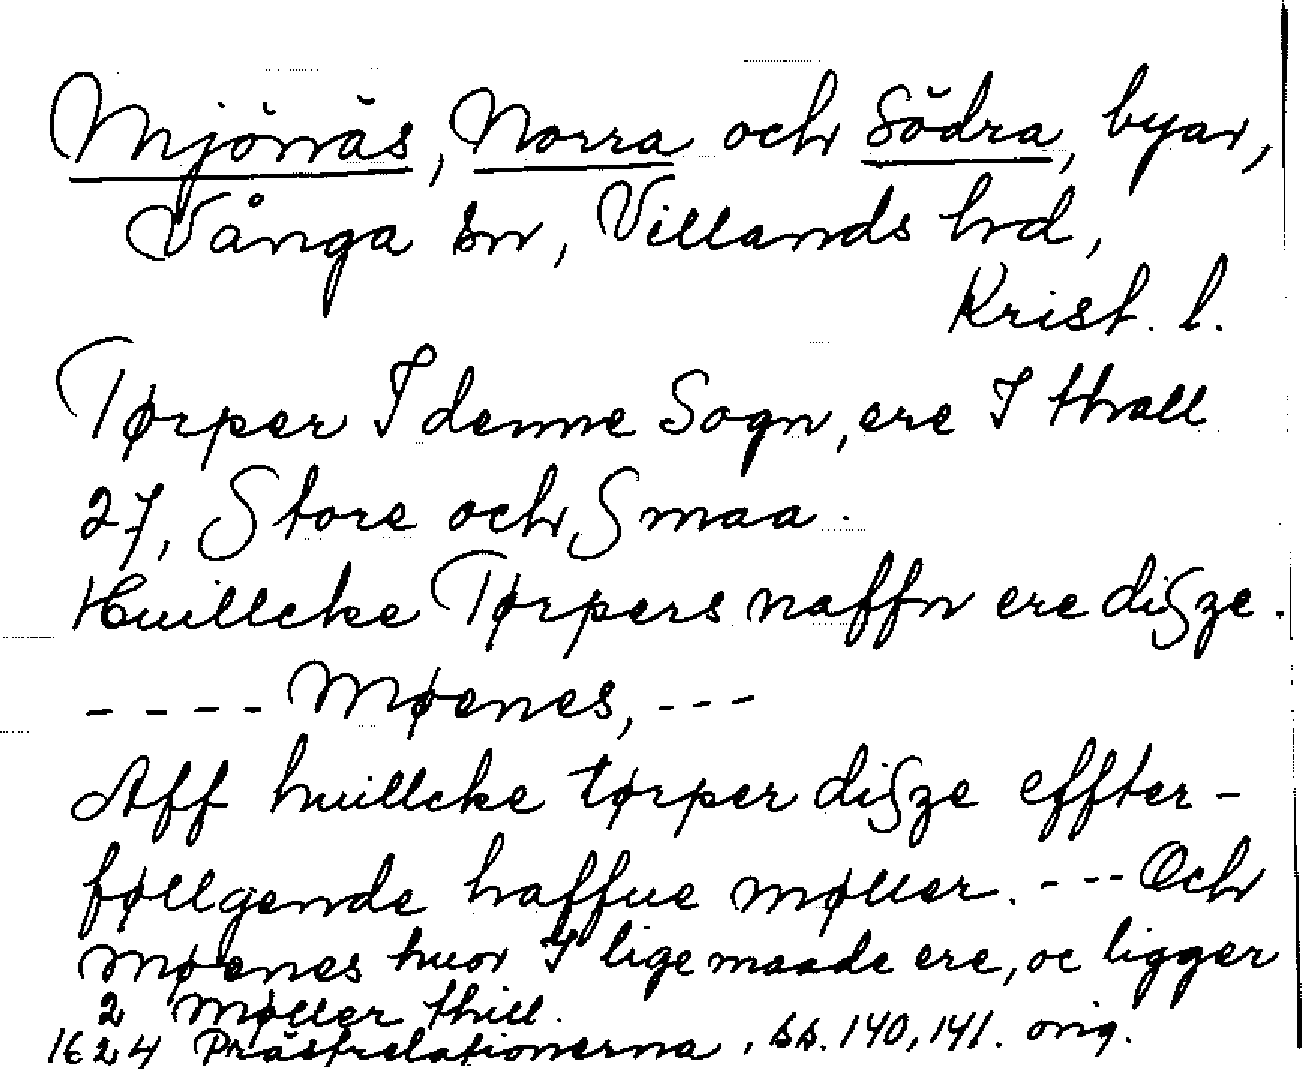 Mjönäs, Norra och Södra, byar,
Vånga sn, Villands hd,
Krist. l.
Tørper I denne Sogn, ere I thall
27, Store och Smaa.
Huillcke Tørpers naffn ere disze.
---- Møenes, ---
Aff huillcke tørper disze effter-
føllgende haffue møller. --- Och
Møenes huor I lige maade ere, oc ligger
2 Møller thill.
1624 Prästrelationerna, ss. 140, 141. orig.